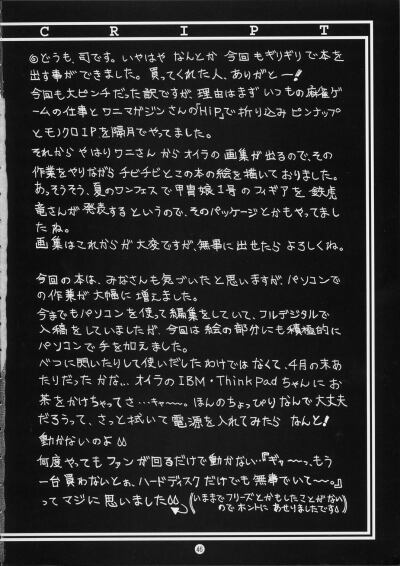 CRIPT
◎どうも、司です。いやはや なんとか 今回もギリギリで本を
出す事ができました。買ってくれた人、ありがとー!
今回も大ピンチだった訳ですが、理由はまず いつもの麻雀ゲ
ームの仕事とワニマガジンさんの「HiP」で折り込みピンナップ
とモノクロ1Pを隔月でやってました。
それから やはりワニさん からオイラの画集が出るので、その
作業をやりながら チビチビとこの本の絵を描いておりました。
あっそうそう、夏のワンフェスで甲冑娘1号のフィギアを 鉄虎
竜さんが発表するというので、そのパッケージとかもやってまし
たね。
画集はこれからが大変ですが、無事に出せたら よろしくね。
今回の本は、みなさんも気づいたと思いますが、パソコンで
の作業が大幅に増えました。
今までもパソコンを使って編集をしていて、フルデジタルで
入稿をしていましたが、今回は絵の部分にも積極的に
パソコンで手を加えました。
べつに閃いたりして使いだしたわけではなくて、4月の末あ
たりだったかな... オイラのIBM・ThinkPadちゃんにお
茶をかけちゃってさ…キャ〜〜。ほんのちょっぴりなんで大丈夫
だろうって、さっと拭いて 電源を入れてみたら なんと!
動かないのよ
何度やってもファンが回るだけで動かない…『ギャ〜〜っ、もう
一台買わないとぉ、ハードディスクだけでも無事でいて〜。』
ってマジに思いました
(いままでフリーズとかもしたことがない
のでホントに あせりましたです)
46